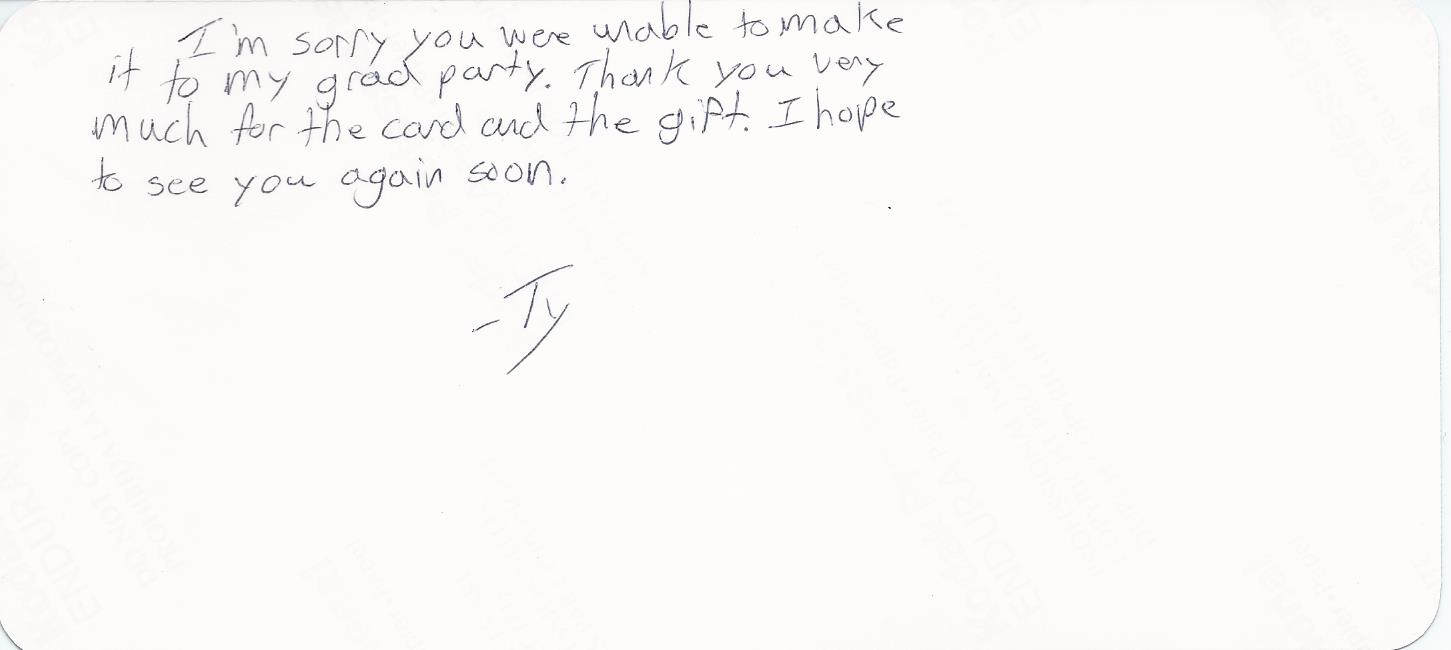 I'm sorry you were unable to make
it to my grad party. Thank you very
much for the card and the gift. I hope
to see you again soon.
-Ty